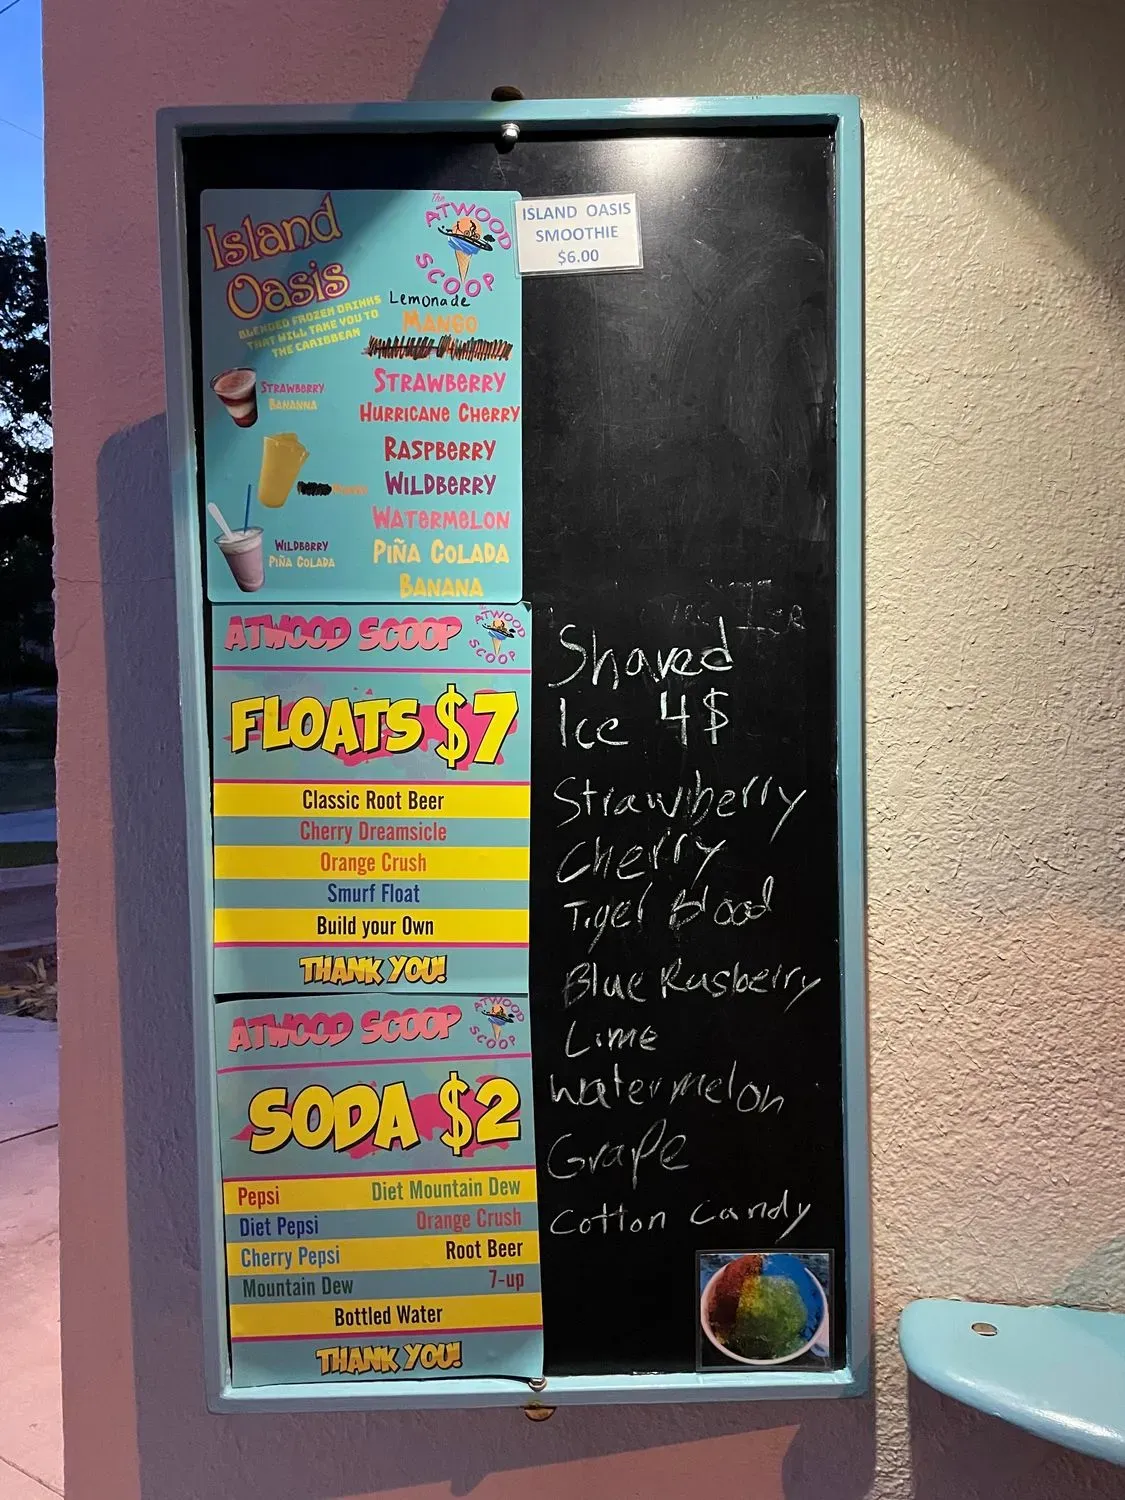 Island
Oasis
BLENDED FROZEN DRINKS
THAT WILL TAKE YOU TO
THE CARIBBEAN
The
ATWOOD
SCOOP
Lemonade
MANGO
STRAWBERRY
HURRICANE CHERRY
RASPBERRY
WILDBERRY
WATERMELON
PIÑA COLADA
BANANA
STRAWBERRY
BANANNA
WILDBERRY
PIÑA COLADA
ISLAND OASIS
SMOOTHIE
$6.00
ATWOOD SCOOP
The
ATWOOD
SCOOP
FLOATS $7
Classic Root Beer
Cherry Dreamsicle
Orange Crush
Smurf Float
Build your Own
THANK YOU!
ATWOOD SCOOP
ATWOOD
SCOOP
SODA $2
Pepsi Diet Mountain Dew
Diet Pepsi Orange Crush
Cherry Pepsi Root Beer
Mountain Dew 7-up
Bottled Water
THANK YOU!
Shaved
Ice 4$
Strawberry
Cherry
Tiger Blood
Blue Rasberry
Lime
Watermelon
Grape
Cotton Candy